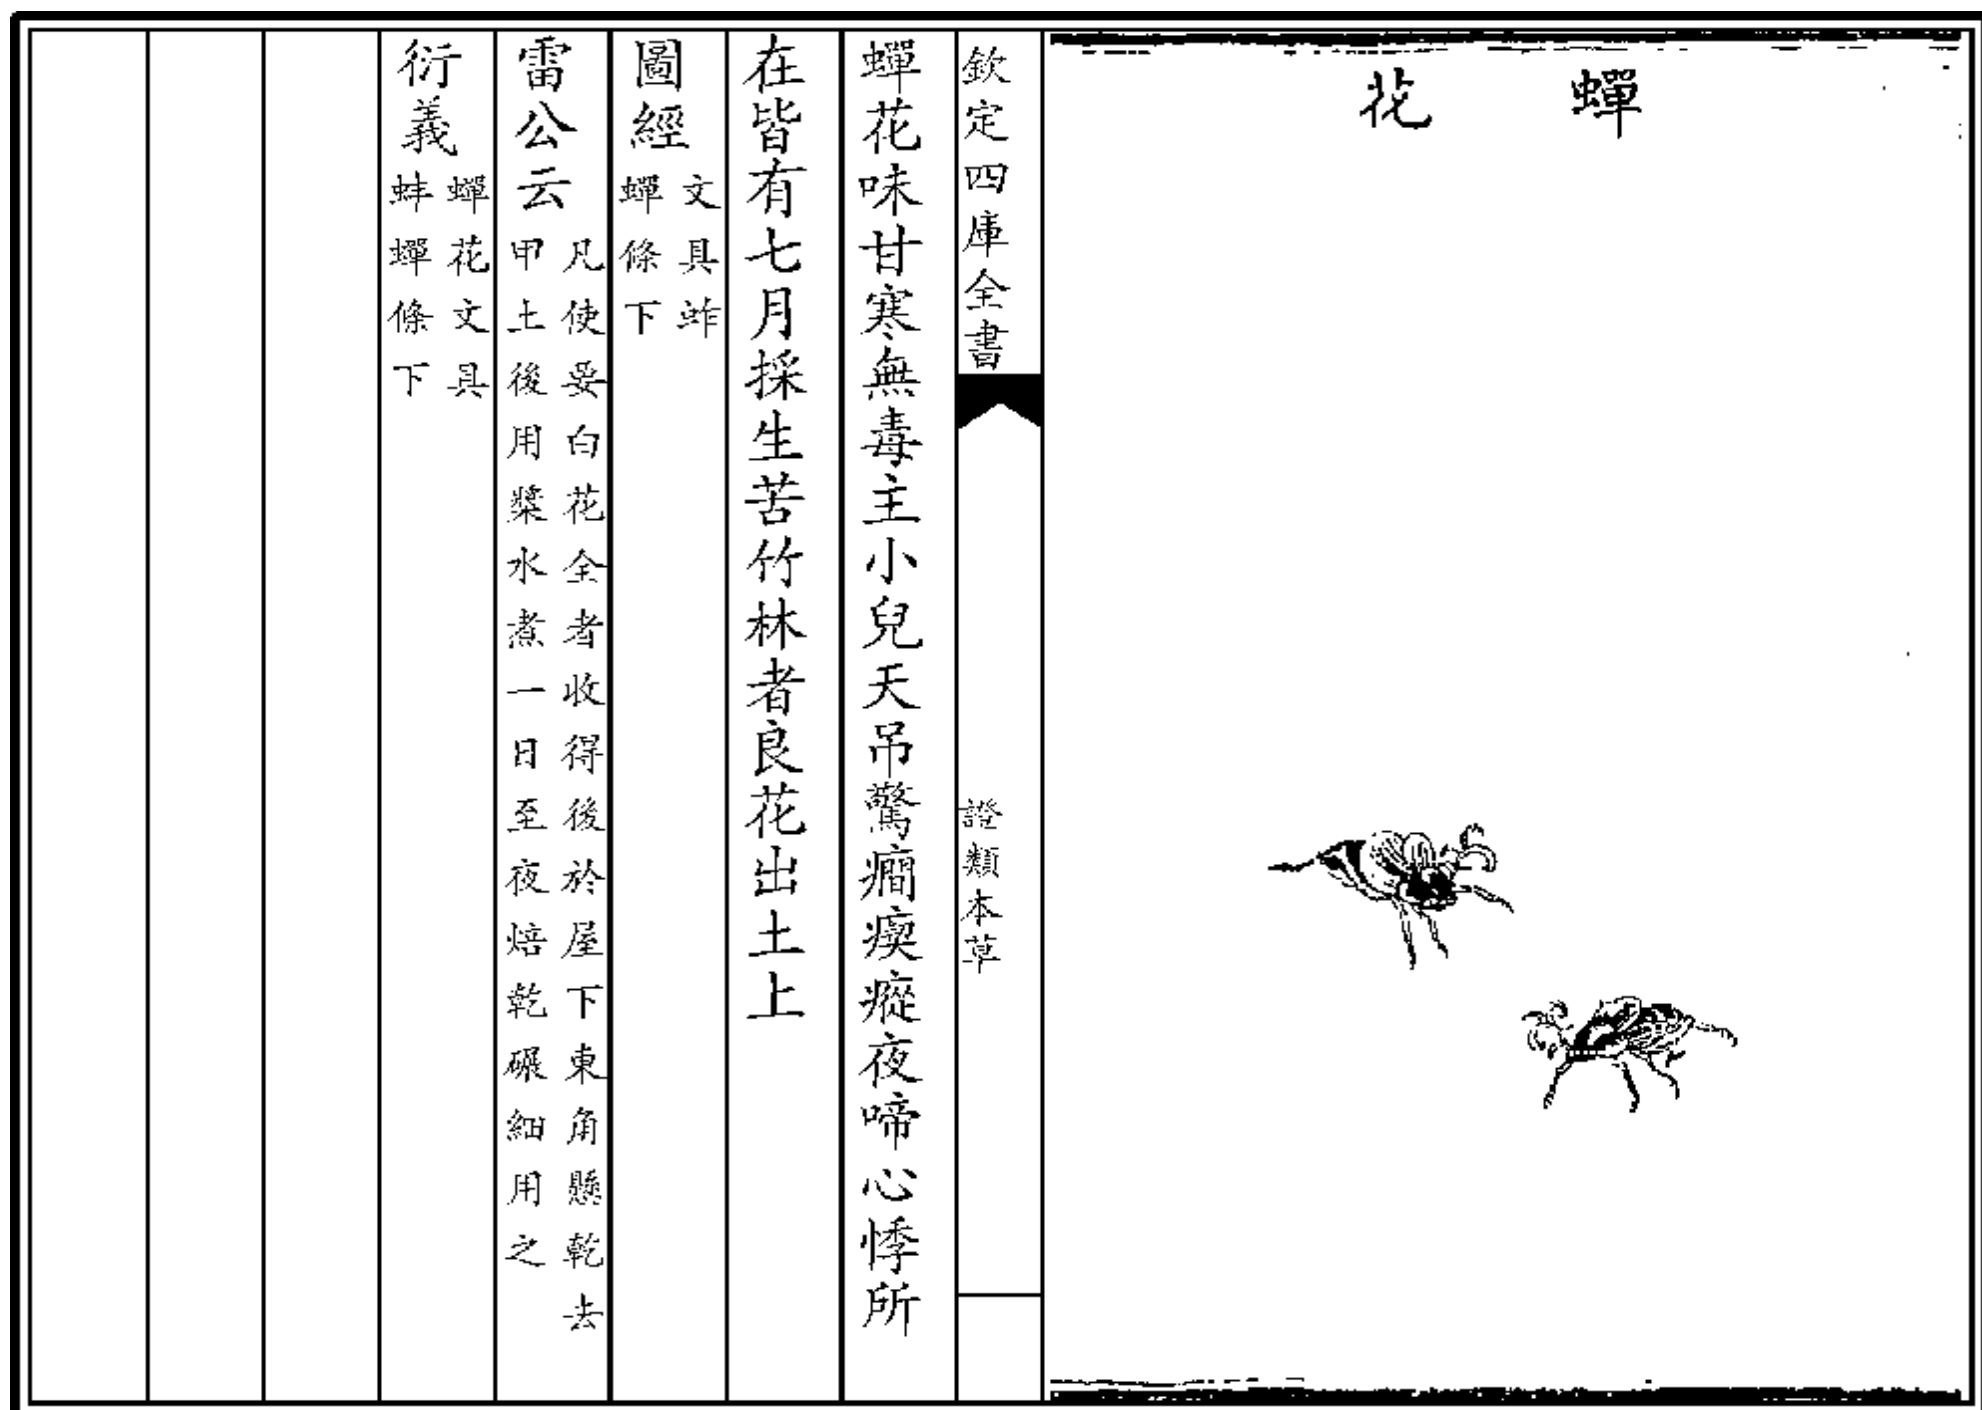 蟬花
欽定四庫全書
證類本草
蟬花味甘寒無毒主小兒天吊驚癎瘈瘲夜啼心悸所
在皆有七月採生苦竹林者良花出土上
圖經文具蚱
蟬條下
雷公云凡使要白花全者收得後於屋下東角懸乾去
甲土後用漿水煮一日至夜焙乾碾細用之
衍義蟬花文具
蚌蟬條下